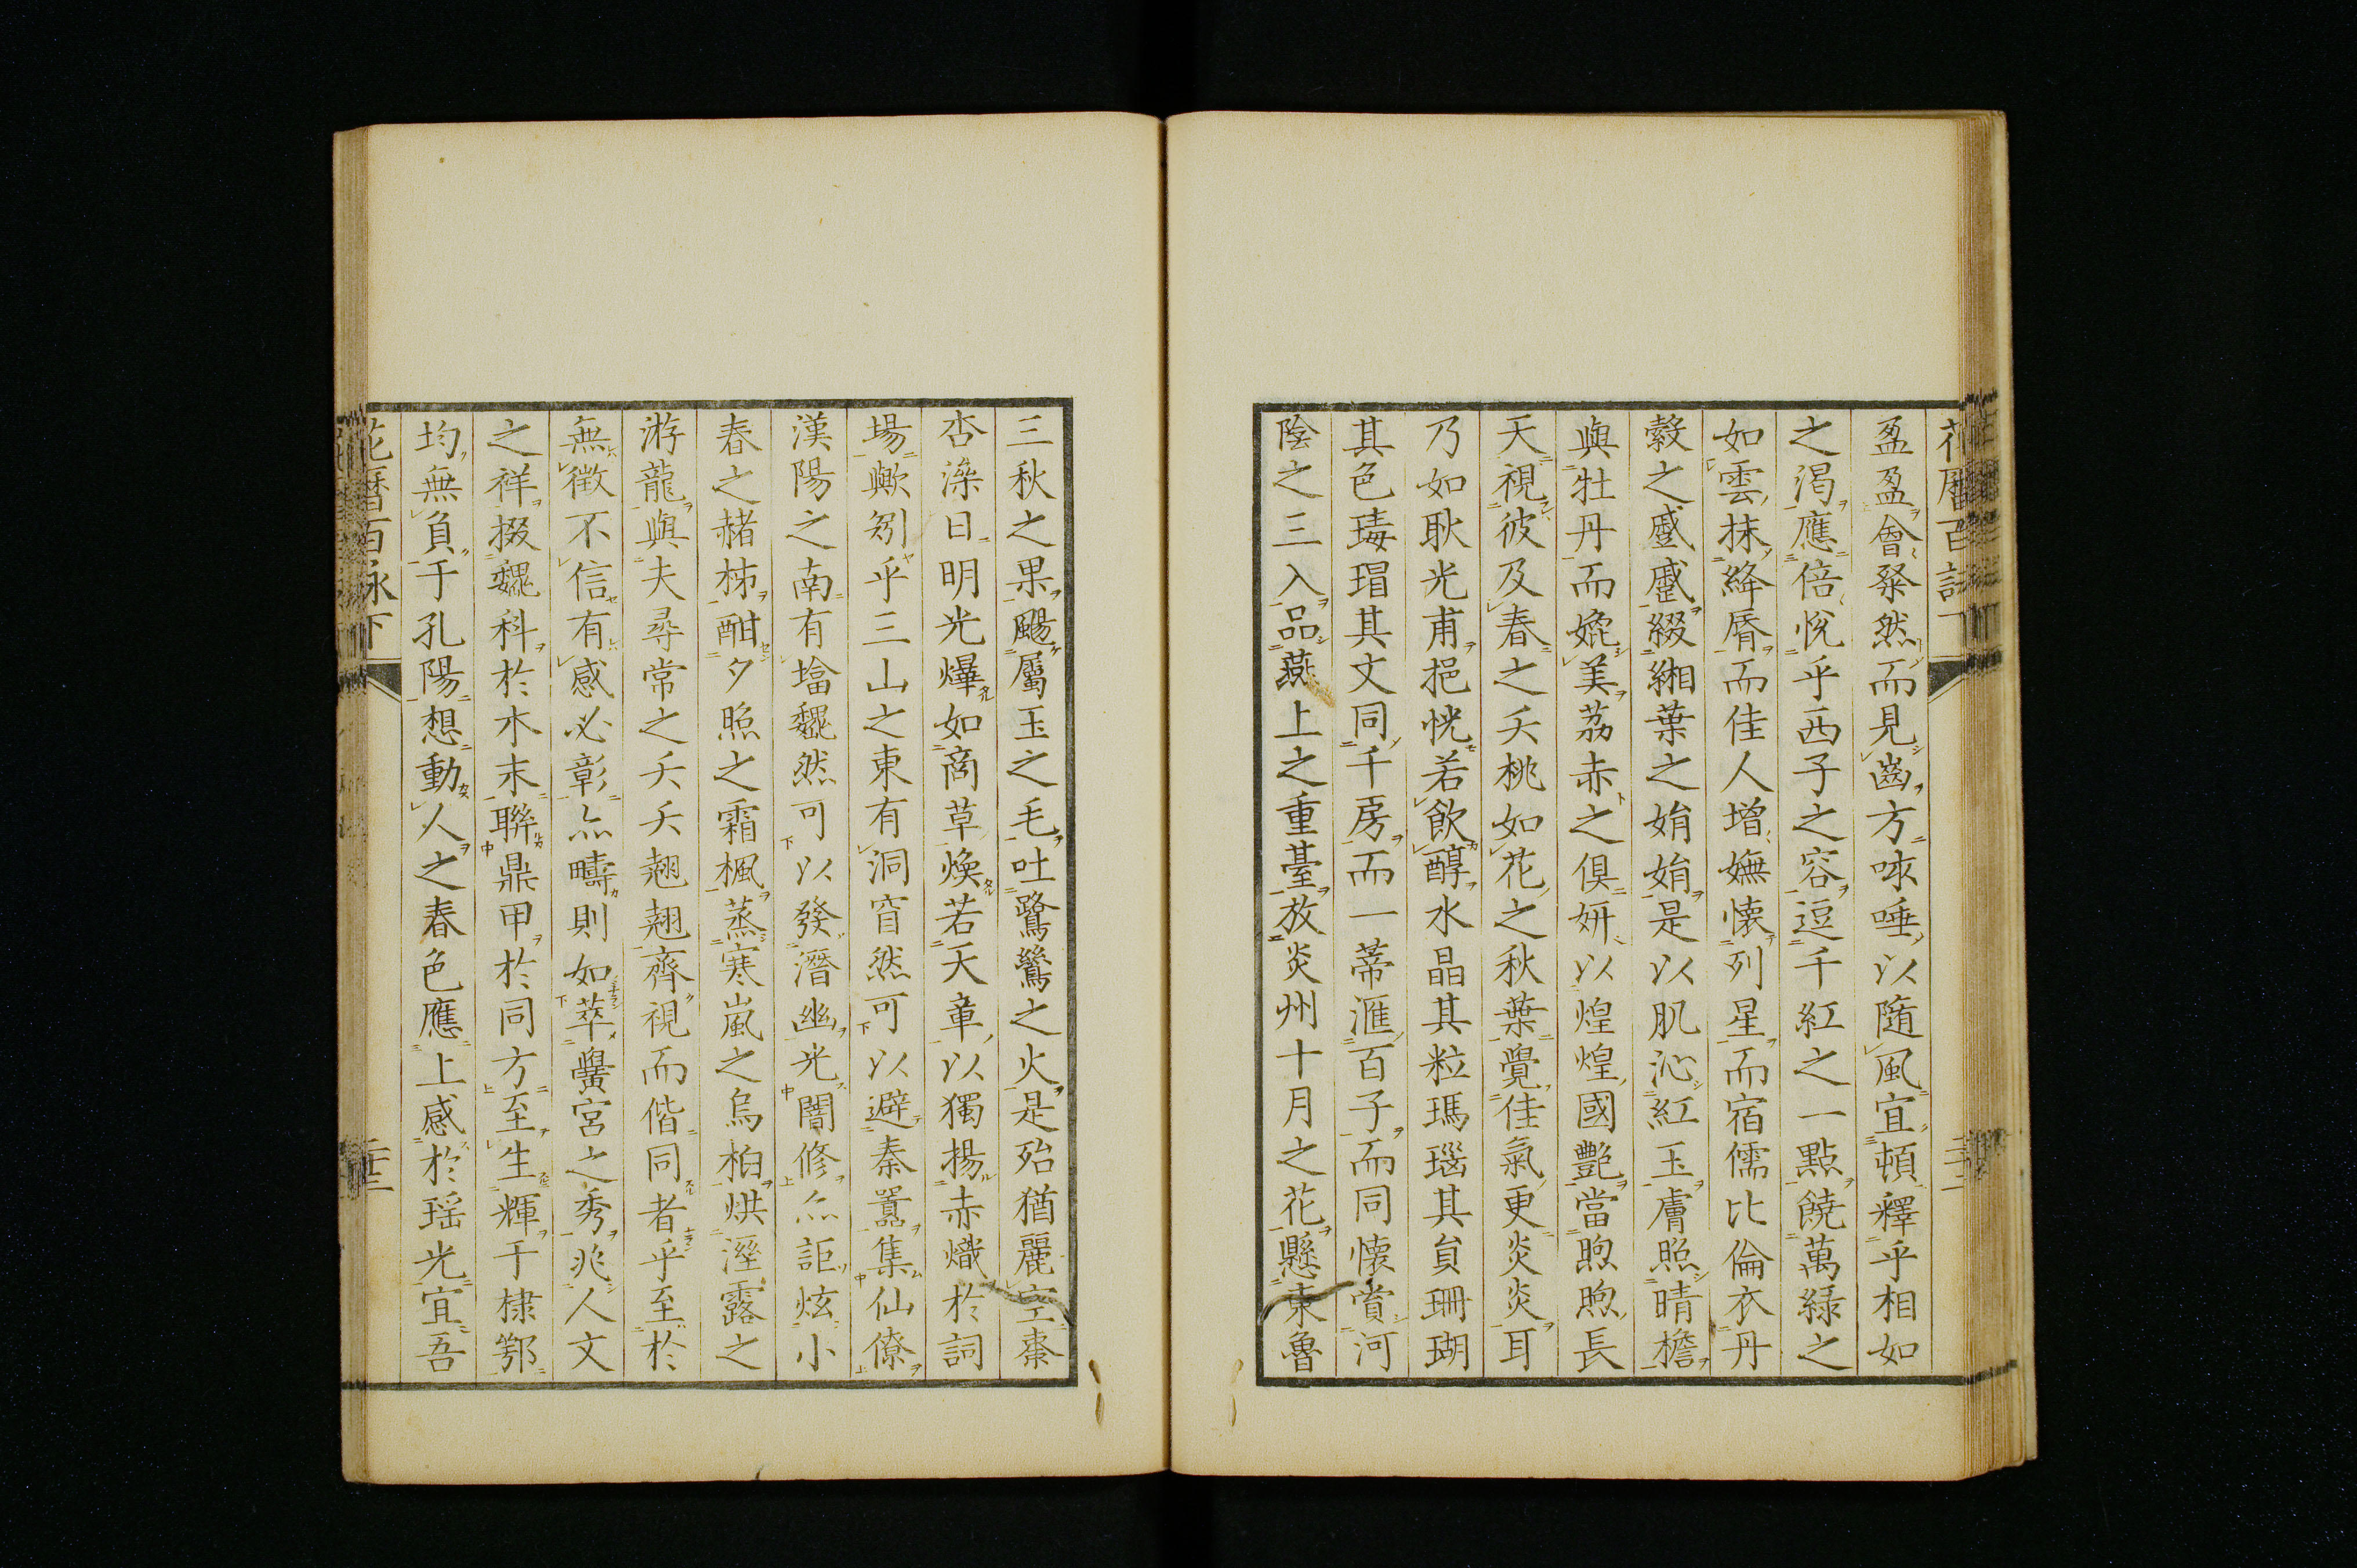 盈盈會粲然而見齒方唻唾以隨風宜頓釋乎相如
之渴應倍悅乎西子之容逗千紅之一點饒萬緑之
如雲抹絳脣而佳人增嫵懷列星而宿儒比倫衣丹
縠之蹙蹙綴緗葉之娟娟是以肌沁紅玉膚照晴檐
與牡丹而媲美荔赤之俱妍以煌煌國艷當煦煦長
天視彼及春之夭桃如花之秋葉覺佳氣更炎炎耳
乃如耿光甫挹恍若飲醇水晶其粒瑪瑙其貟珊瑚
其色瑇瑁其文同千房而一蒂滙百子而同懷賞河
陰之三入品燕上之重臺放炎州十月之花懸東魯
三秋之果颺屬玉之毛吐鷺鷥之火是殆猶麗空棗
杏深日明光爗如商草煥若天章以獨揚赤熾於詞
場歟矧乎三山之東有洞窅然可以避秦囂集仙僚
漢陽之南有㙮巍然可以發潛幽光闇修亦詎炫小
春之赭柿酣夕照之霜楓蒸寒嵐之烏桕烘溼露之
游龍與夫尋常之夭夭翹翹齊視而偕同者乎至於
無徵不信有感必彰亦疇則如萃黌宮之秀兆人文
之祥掇巍科於木末聯鼎甲於同方至生輝于棣鄂
均無負于孔陽想動人之春色應上感於瑶光宜吾
花曆百詠下